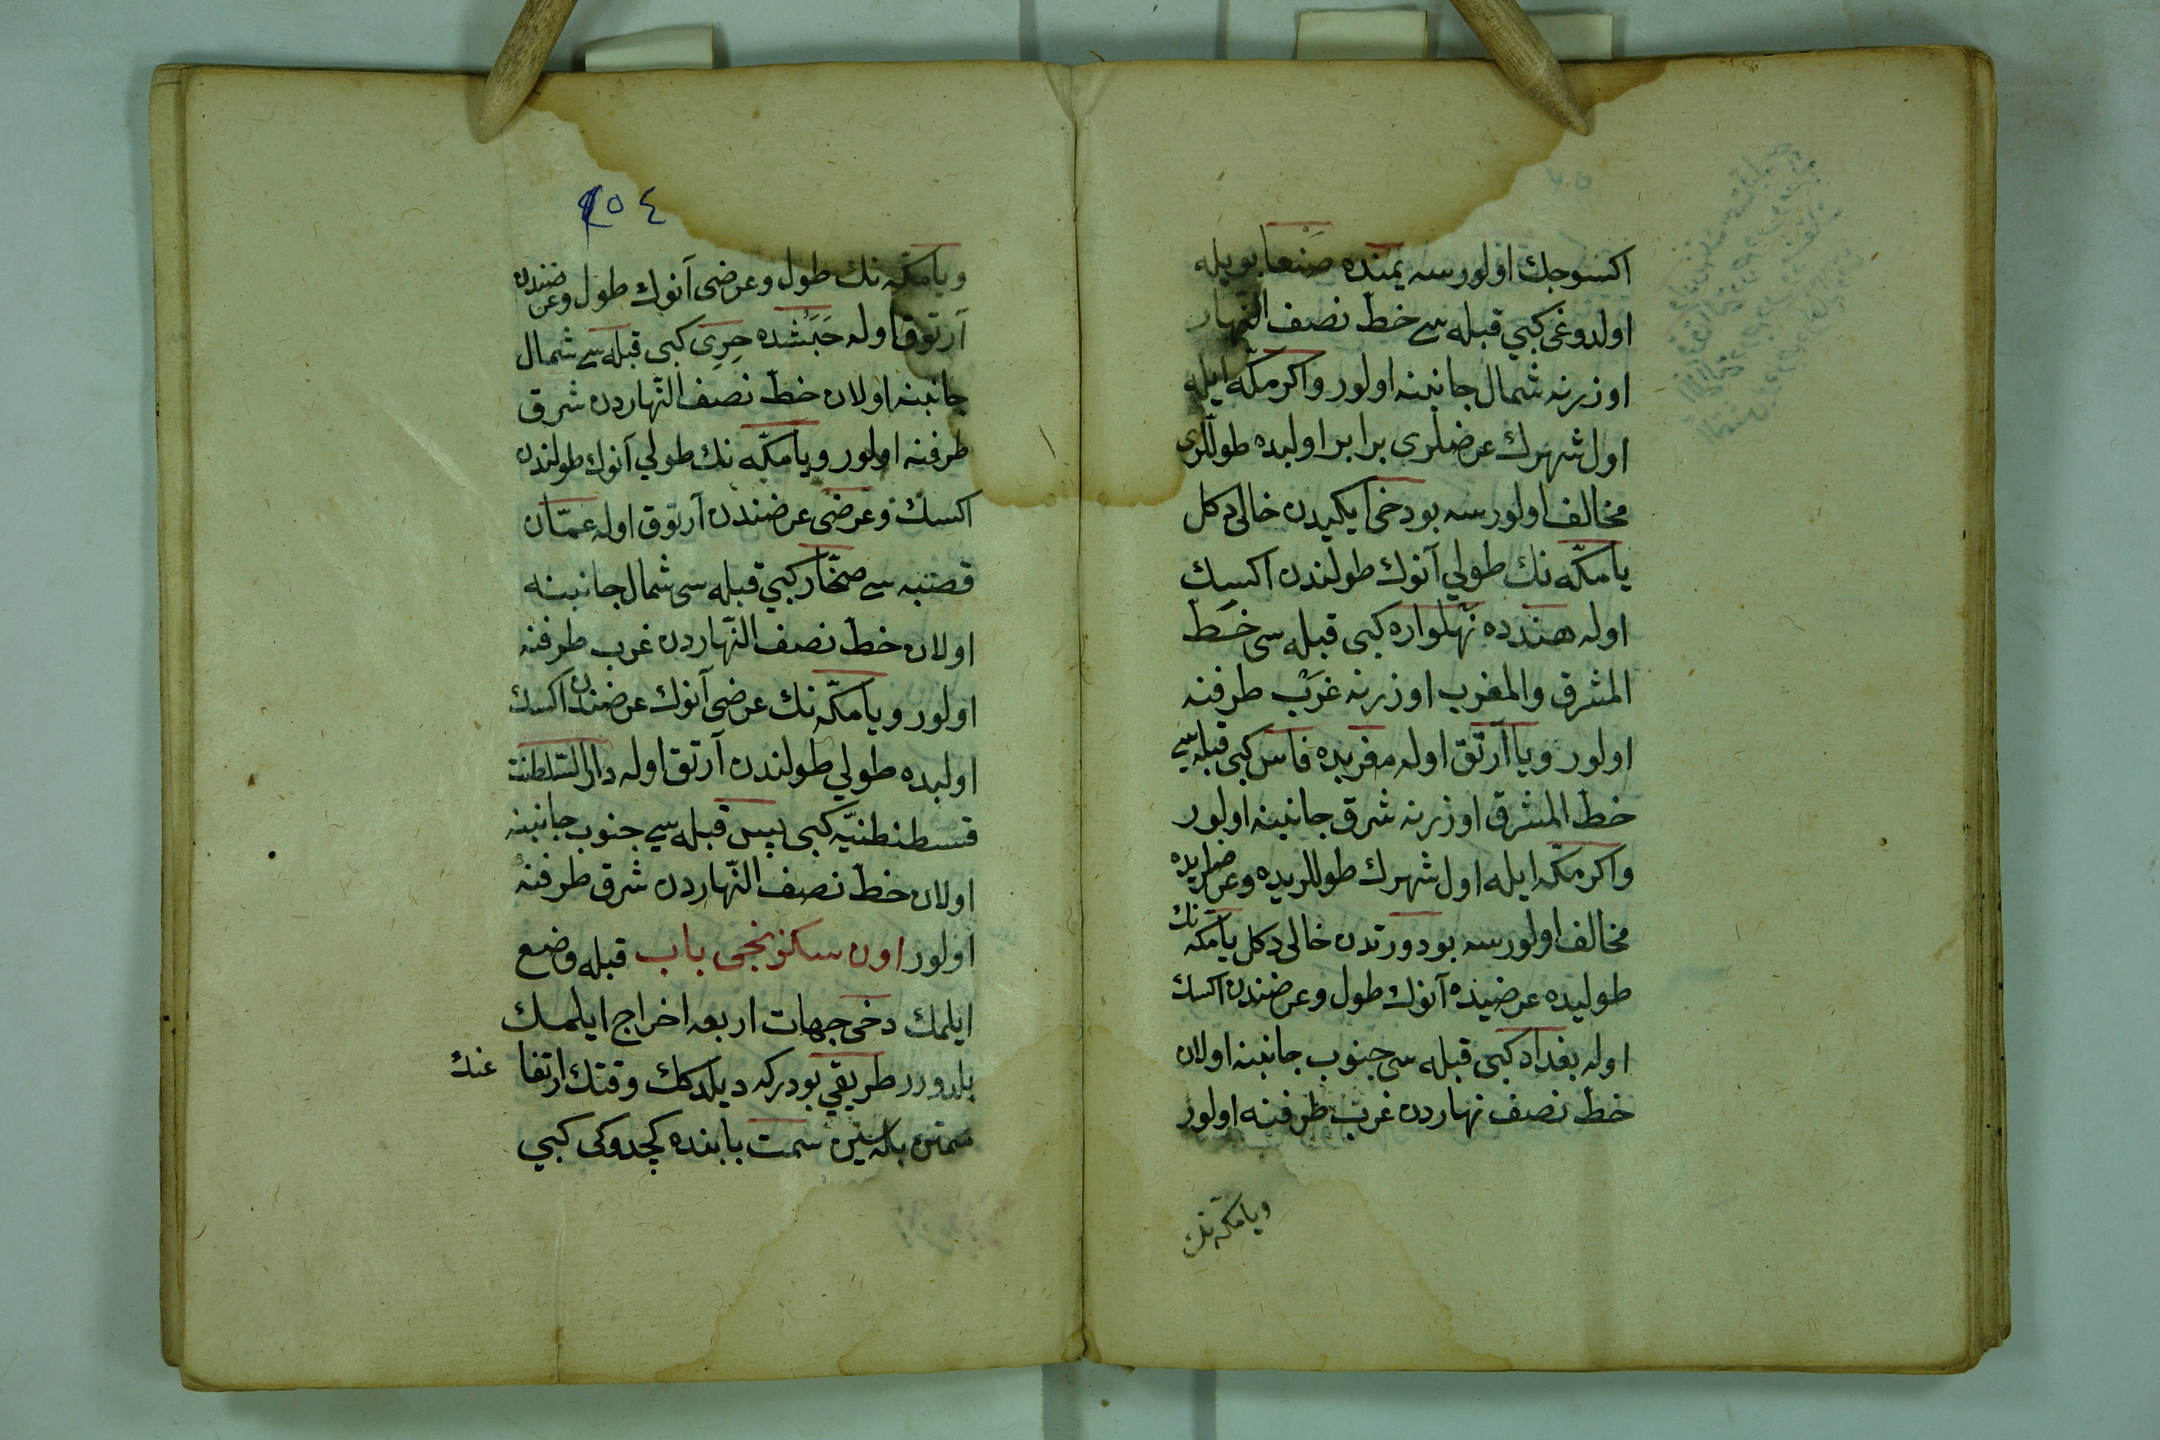 اكسوجك اولورسه يمنده صَنْعا بويله
اولدوغى كبي قبله سے خطّ نصف النّهار
اوزرنه شمال جانبنه اولور واكر مكّه ايله
اول شهرك عرضلرى برابر اولبده طوللرى
مخالف اولورسه بو دخى ايكيدن خالى دكل
يا مكّه نك طولي آنوك طولندن اكسك
اوله هندده نهلواره كبى قبله سى خطّ
المشرق والمغرب اوزرنه غرب طرفنه
اولور ويا آرتق اوله مغربده فاس كبى قبله سے
خطّ المشرق اوزرنه شرق جانبنه اولور
واكر مكّه ايله اول شهرك طوللريده وعرضلريده
مخالف اولورسه بو دورتدن خالى دكل يا مكّه نك
طوليده عرضيده آنوك طول وعرضندن اكسك
اوله بغداد كبى قبله سى جنوب جانبنه اولان
خطّ نصف نهاردن غرب طرفنه اولور
ويا مكّه نك
٢٥٤
ويا مكّه نك طول وعرضى آنوك طول وعرضندن
آرتوق اوله حَبَشَده جرى كبى قبله سے شمال
جانبنه اولان خطّ نصف النّهاردن شرق
طرفنه اولور ويا مكّه نك طولي آنوك طولندن
اكسك وعرضى عرضندن آرتوق اوله عمّان
قصبه سے صحّار كبي قبله سى شمال جانبنه
اولان خطّ نصف النّهاردن غرب طرفنه
اولور ويا مكّه نك عرضى آنوك عرضندن اكسك
اولبده طولي طولندن آرتق اوله دار السّلطنت
قسطنطنيّه كبى پس قبله سے جنوب جانبنه
اولان خطّ نصف النّهاردن شرق طرفنه
اولور اون سكزنجى باب قبله وضع
ايلمك دخى جهات اربعه اخراج ايلمك
بلدورر طريقي بودركه ديلدكك وقتك ارتفا
عنك
سمتن بله سين سمت بابنده كچدوكى كبي